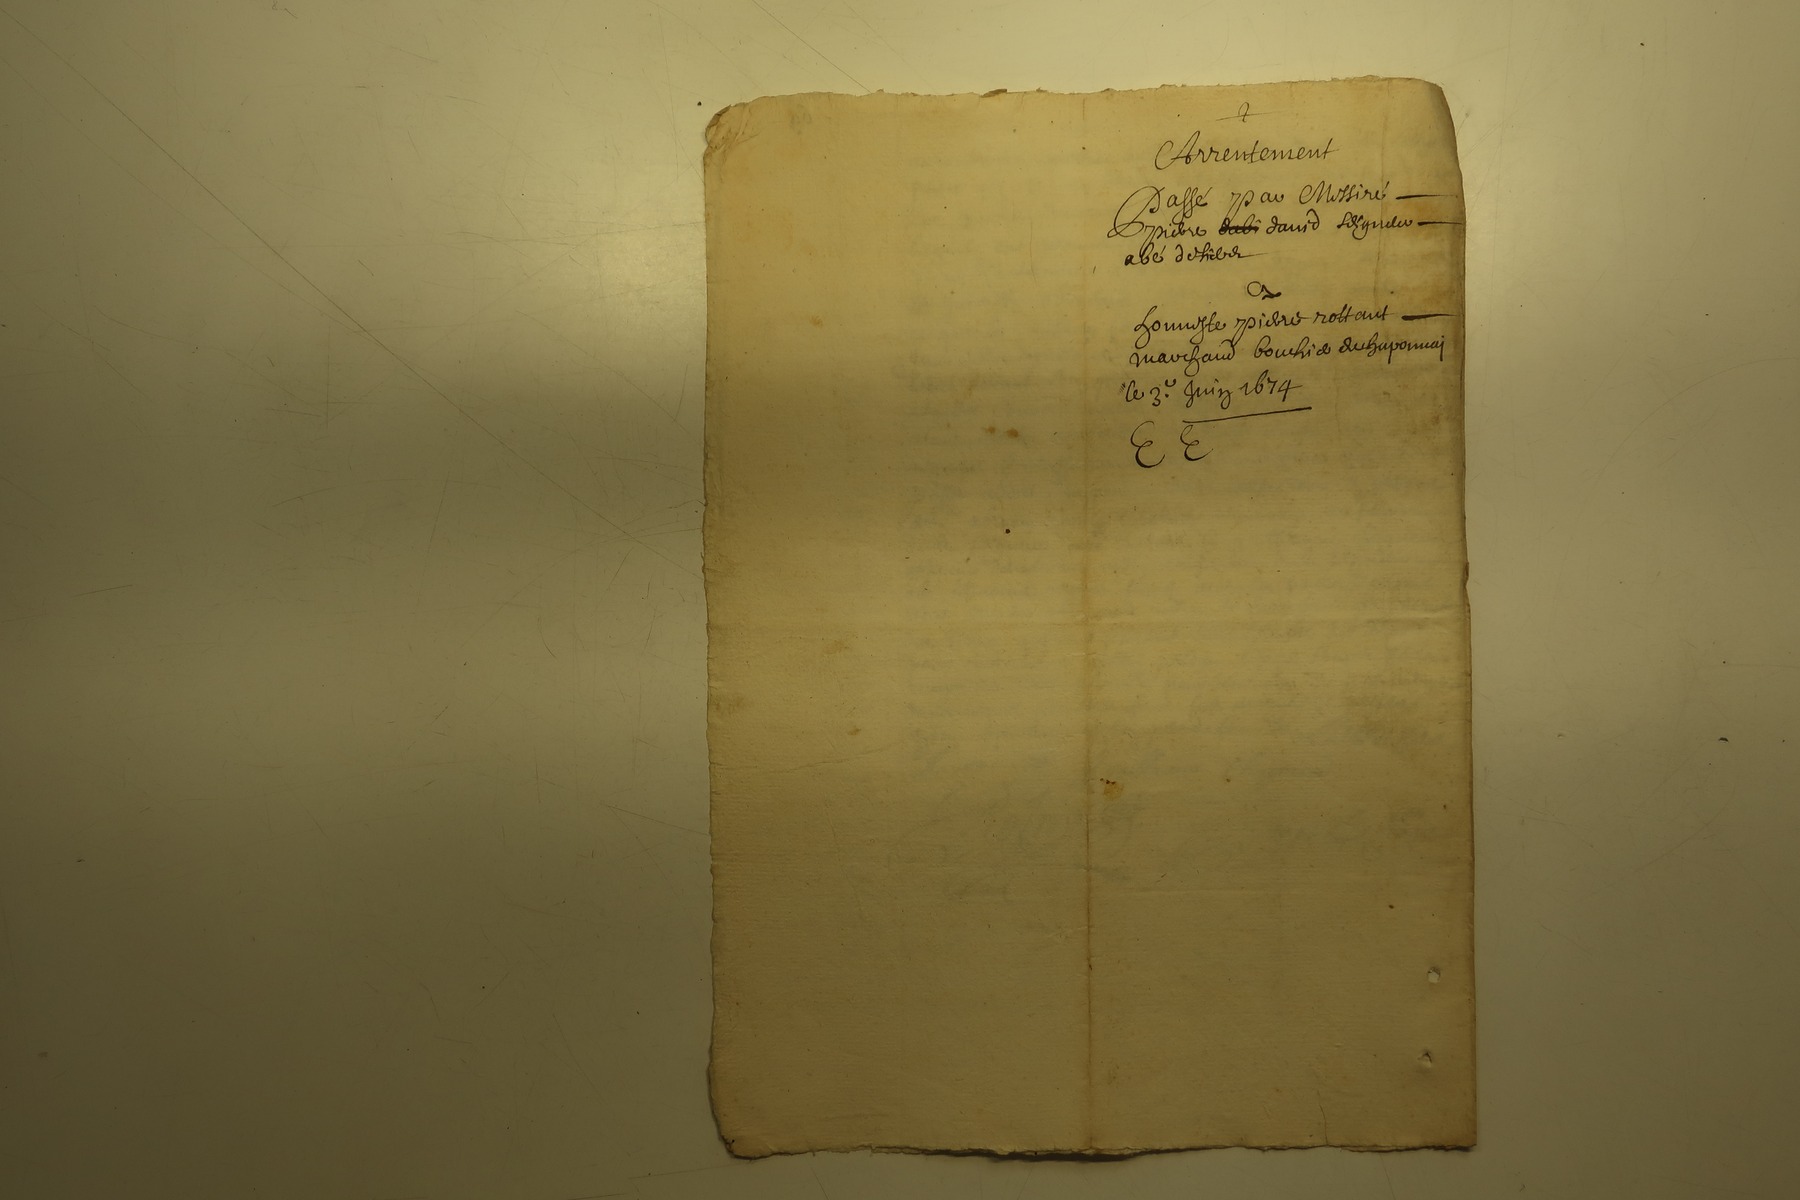 Arrentement
Passé par Messire
piere david seigneur
abé de
A
honneste piere rottant
marchand bouchie de chaponnai
le 3.e Juin 1674
E E